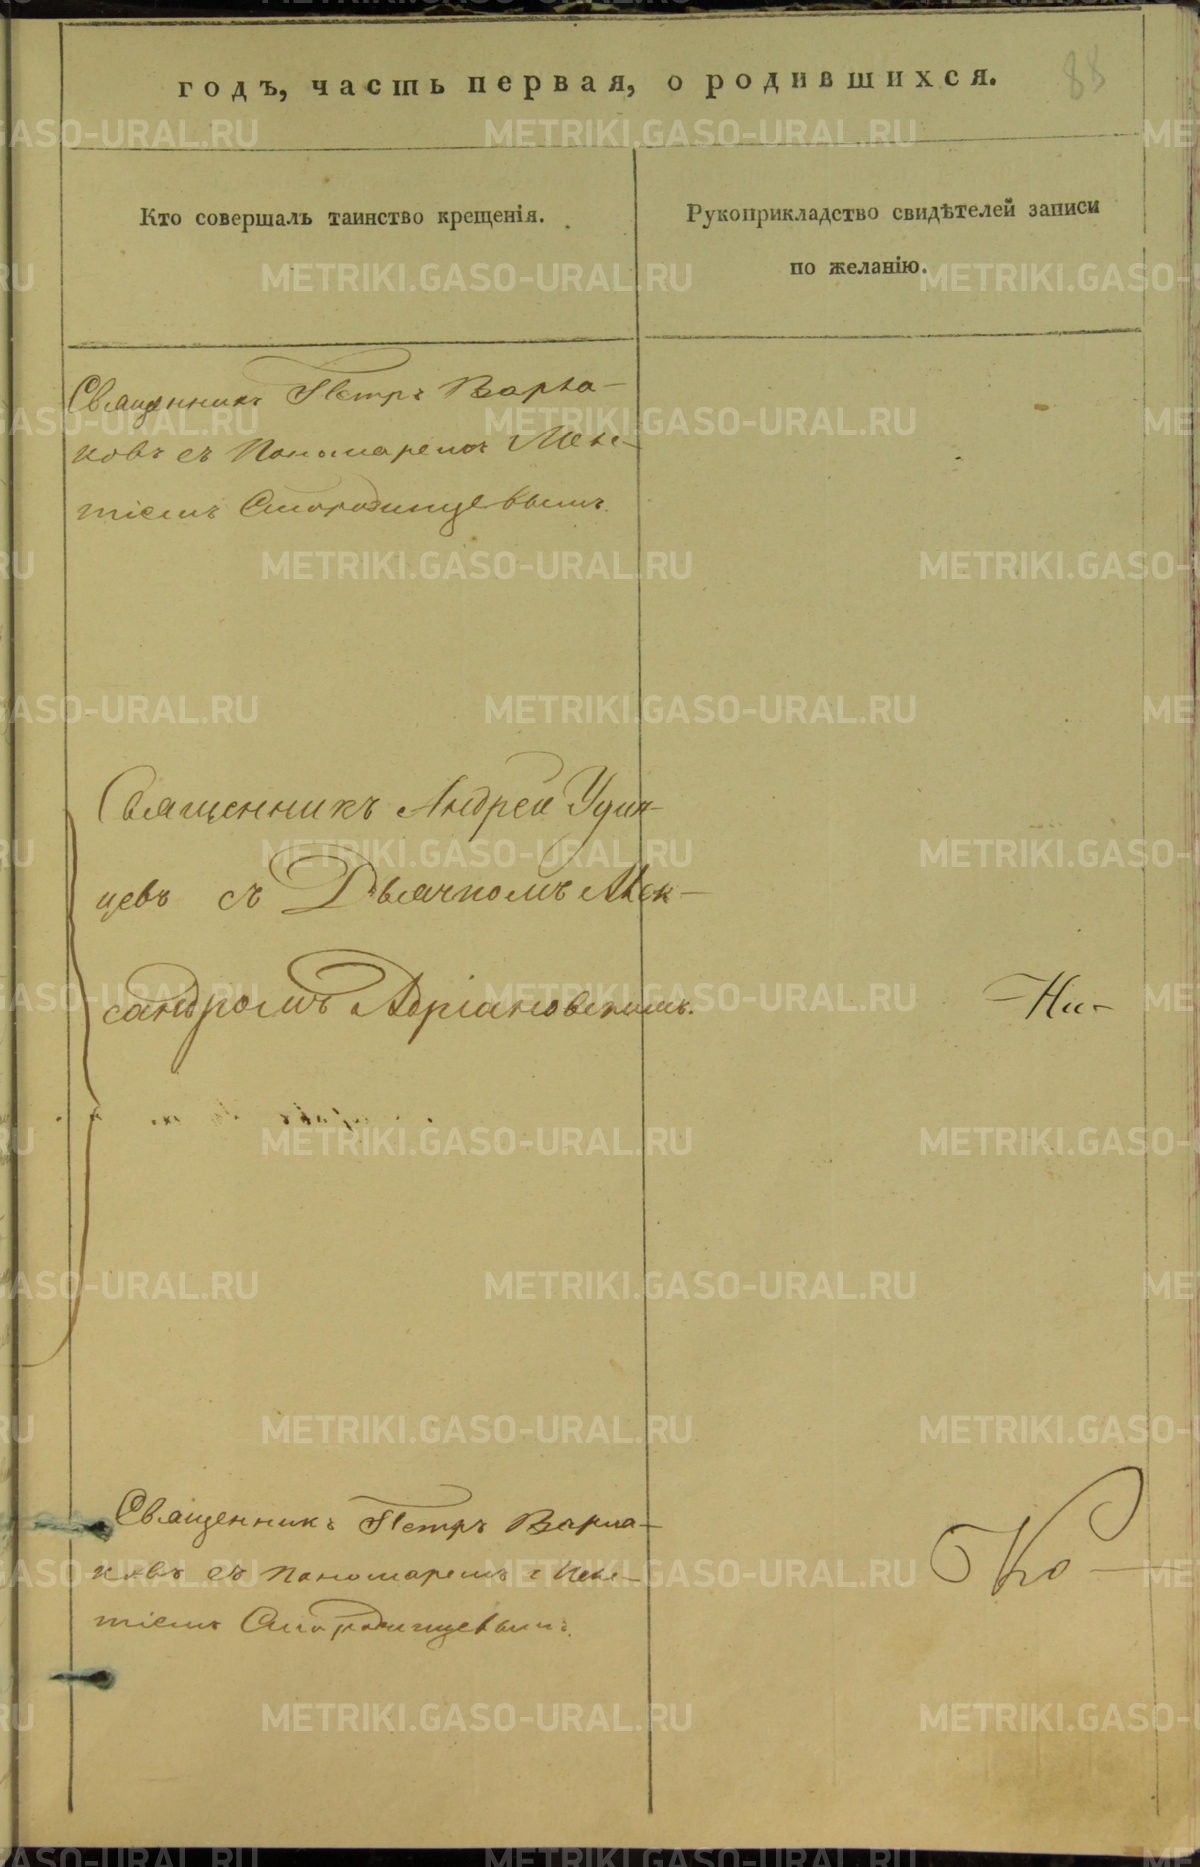 годъ, часть первая, о родившихся.
88
Кто совершалъ таинство крещенія.
Рукоприкладство свидѣтелей записи
по желанію.
Священникъ Петръ Варла-
ковъ съ Пономаремъ
тіемъ Смородинцевымъ.
Священникъ Андрей Удин-
цевъ съ Дьячкомъ Алек-
сандромъ Адріановскимъ.
Ни-
Священникъ Петръ Варла-
ковъ съ Пономаремъ
тіемъ Смородинцевымъ.
Ко-
METRIKI.GASO-URAL.RU